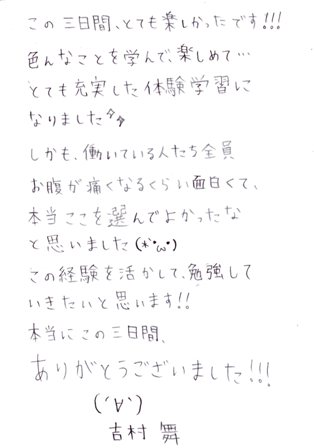 この三日間、とても楽しかったです!!!
色んなことを学んで、楽しめて…
とても充実した体験学習に
なりました
しかも、働いている人たち全員
お腹が痛くなるくらい面白くて、
本当ここを選んでよかったな
と思いました(*･ω･)
この経験を活かして、勉強して
いきたいと思います!!
本当にこの三日間、
ありがとうございました!!!
(´∀`)
吉村 舞